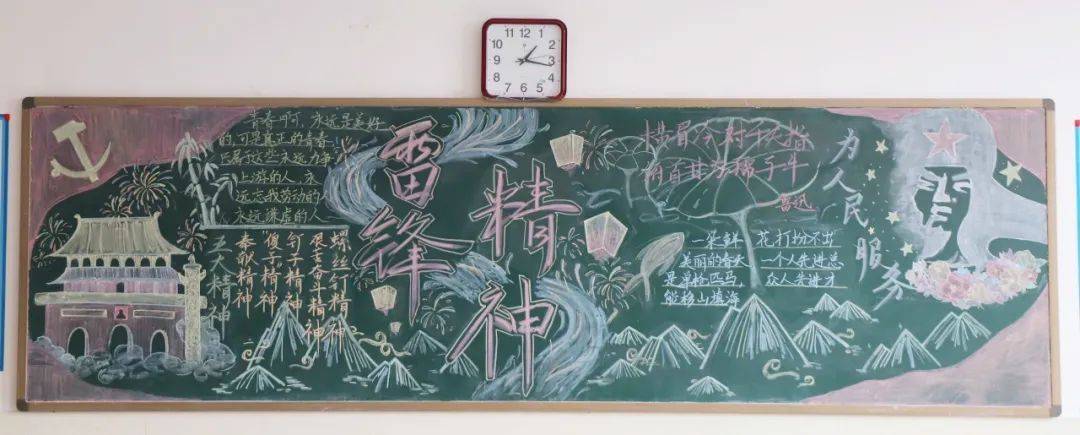 11 12 1
10 2
9 3
8 4
7 6 5
青春啊,永远是美好
的,可是真正的青春
属于这些永远力争
上游的人,永
远忘我劳动的
永远谦虚的人
五大精神
奉献精神
傻子精神
钉子精神
艰苦奋斗精神
螺丝钉精神
雷锋
精神
横眉冷对千夫指
俯首甘为孺子牛
鲁迅
一朵鲜花打扮不出
美丽的春天 一个人先进总
是单枪匹马 众人先进才
能移山填海
为人民服务